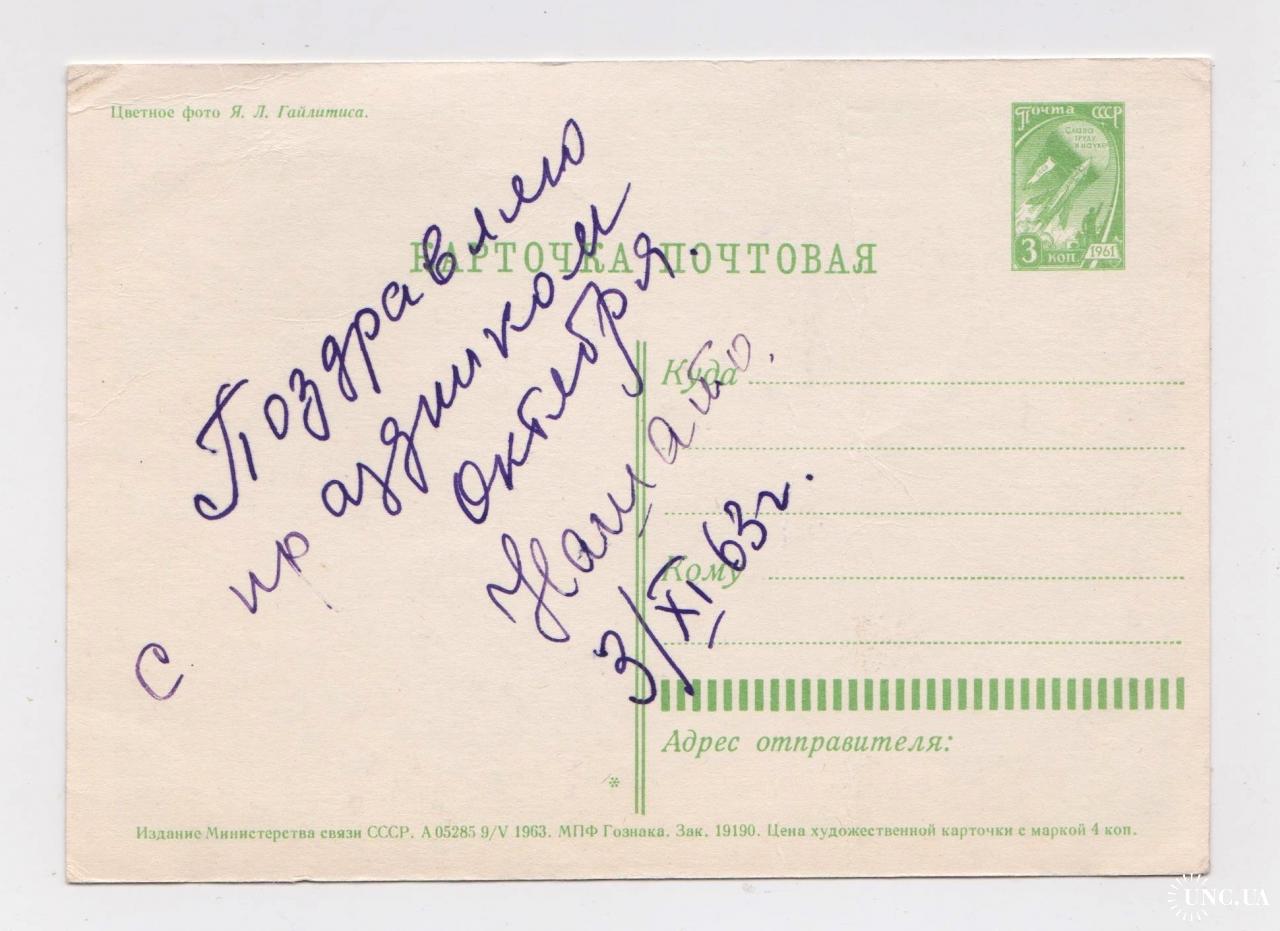 Цветное фото Я. Л. Гайлитиса.
Почта СССР
Слава
труду
и науке
3 коп
1961
КАРТОЧКА ПОЧТОВАЯ
Поздравляю
с праздником
октября.
3/XI 63г.
Куда
Кому
Адрес отправителя:
*
Издание Министерства связи СССР. А 05285 9/V 1963. МПФ Гознака. Зак. 19190. Цена художественной карточки с маркой 4 коп.
UNC.UA